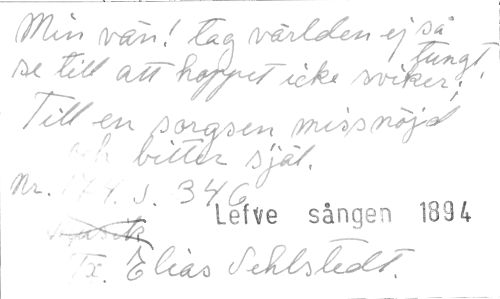 Min vän! tag världen ej så
tungt,
se till att hoppet icke sviker;
Till en sorgsen missnöjd
och bitter själ.
Nr. s. 346
Lefve sången 1894
Tx. Elias Sehlstedt.